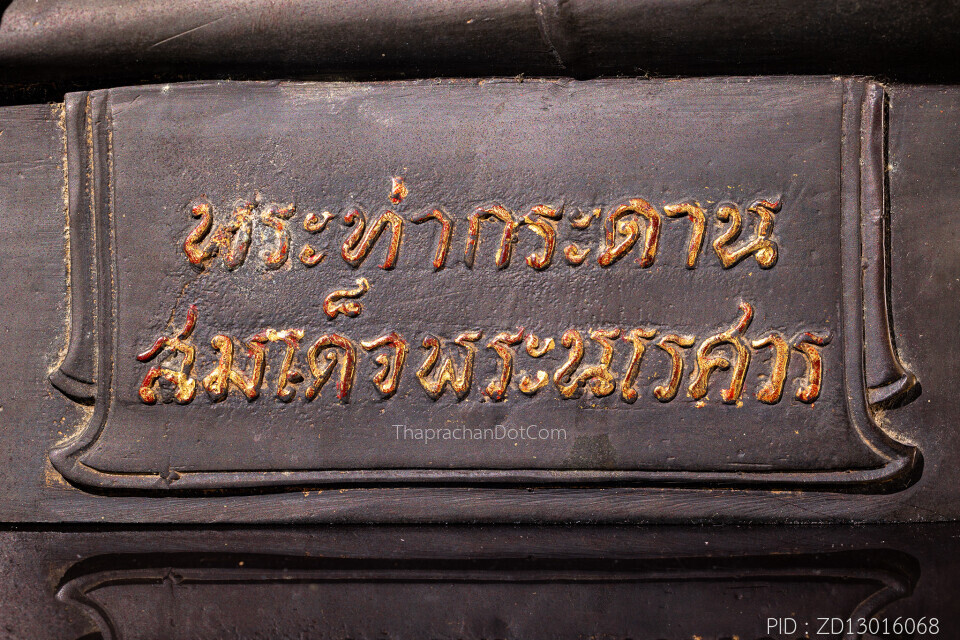 พระท่ากระดาน
สมเด็จพระนเรศวร
ThaprachanDotCom
PID : ZD13016068